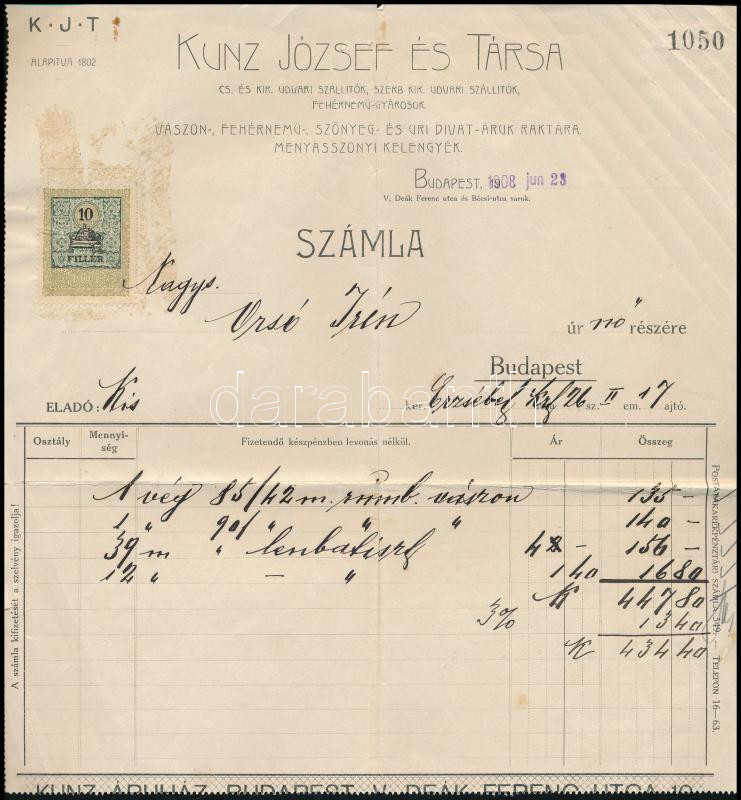 K·J·T
ALAPITVA 1802
1050
KUNZ JÓZSEF ÉS TÁRSA
CS. ÉS KIR. UDVARI SZÁLLITÓK, SZERB KIR. UDVARI SZÁLLITÓK,
FEHÉRNEMŰ-GYÁROSOK.
VÁSZON-, FEHÉRNEMŰ-, SZŐNYEG- ÉS URI DIVAT-ÁRUK RAKTÁRA.
MENYASSZONYI KELENGYÉK.
BUDAPEST, 1908 jun 23
V. Deák Ferenc utca és Bécsi-utca sarok.
10
FILLÉR
SZÁMLA
Nagys.
Orsó Irén
úr nő részére
Budapest
ELADÓ: Kis
ker. Erzsébet 26 sz. II em. 17 ajtó.
Osztály Mennyi-ség Fizetendő készpénzben levonás nélkül. Ár Összeg
1 vég 85/42 m. rumb. vászon 135 -
1 " 90/ " " " 140 -
39 m " lenbatiszt 4 - 156 -
12 " - " 1 40 16 80
K 447 80
3% 13 40
K 434 40
A számla kifizetését a szelvény igazolja!
POSTATAKARÉKPÉNZTÁRI SZÁMLA 549. — TELEFON 16—63.
KUNZ ÁRUHÁZ BUDAPEST, V. DEÁK FERENC UTCA 10
darabanth